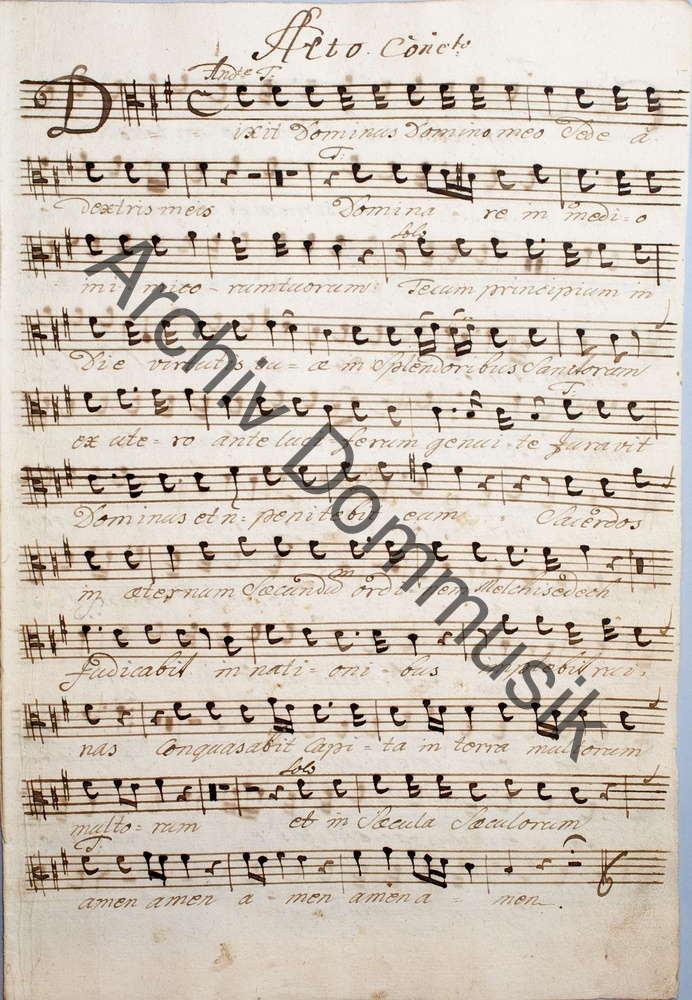 Alto. Conc.to
And.te T:
Dixit Dominus Domino meo Sede a
T:
dextris meis Domina - re in medi - o
Solo
ini mico - rum tuorum Tecum principium in
Die virtutis tu - æ in Splendoribus Sanctorum
T:
ex ute - ro ante luci - ferum genui - te Juravit
Dominus et n penitebit eum Sacerdos
in æternum Secundum ordi nem Melchisedech
Judicabit in nati - oni - bus implebit rui,
nas Conquasabit Capi - ta in terra multorum
Solo
multo - rum et in Sæcula Sæculorum
T:
amen amen a - men amen a - men.
Archiv Dommusik